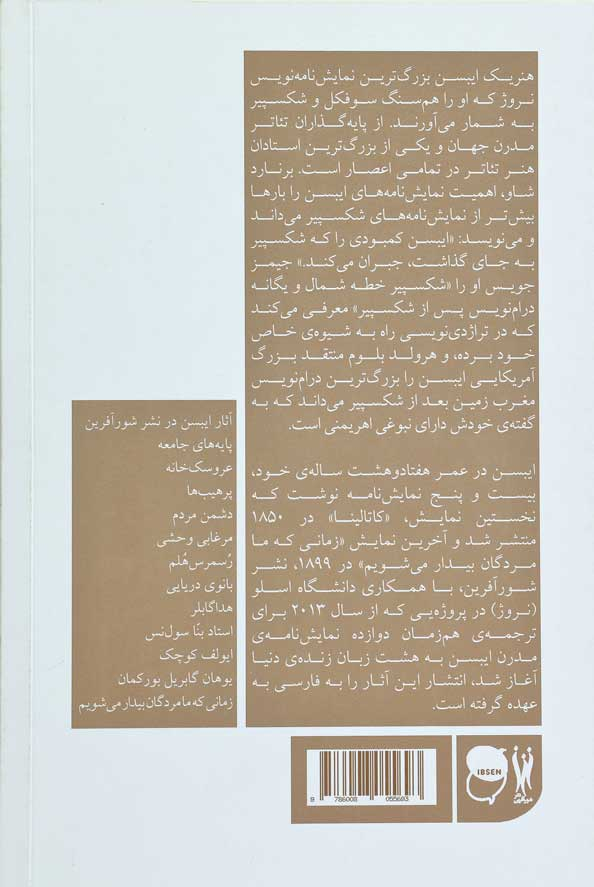 هنریک ایبسن بزرگ‌ترین نمایش‌نامه‌نویس
نروژ که او را هم‌سنگ سوفکل و شکسپیر
به شمار می‌آورند. از پایه‌گذاران تئاتر
مدرن جهان و یکی از بزرگ‌ترین استادان
هنر تئاتر در تمامی اعصار است. برنارد
شاو، اهمیت نمایش‌نامه‌های ایبسن را بارها
بیش‌تر از نمایش‌نامه‌های شکسپیر می‌داند
و می‌نویسد: «ایبسن کمبودی را که شکسپیر
به جای گذاشت، جبران می‌کند.» جیمز
جویس او را «شکسپیر خطه شمال و یگانه
درام‌نویس پس از شکسپیر» معرفی می‌کند
که در تراژدی‌نویسی راه به شیوه‌ی خاص
خود برده، و هرولد بلوم منتقد بزرگ
آمریکایی ایبسن را بزرگ‌ترین درام‌نویس
مغرب زمین بعد از شکسپیر می‌داند که به
گفته‌ی خودش دارای نبوغی اهریمنی است.
ایبسن در عمر هفتادوهشت ساله‌ی خود،
بیست و پنج نمایش‌نامه نوشت که
نخستین نمایش، «کاتالینا» در ۱۸۵۰
منتشر شد و آخرین نمایش «زمانی که ما
مردگان بیدار می‌شویم» در ۱۸۹۹، نشر
شورآفرین، با همکاری دانشگاه اسلو
(نروژ) در پروژه‌یی که از سال ۲۰۱۳ برای
ترجمه‌ی هم‌زمان دوازده نمایش‌نامه‌ی
مدرن ایبسن به هشت زبان زنده‌ی دنیا
آغاز شد، انتشار این آثار را به فارسی به
عهده گرفته است.
آثار ایبسن در نشر شورآفرین
پایه‌های جامعه
عروسک‌خانه
پرهیب‌ها
دشمن مردم
مرغابی وحشی
رُسمرس‌هُلم
بانوی دریایی
هداگابلر
استاد بنّا سول‌نس
ایولف کوچک
یوهان گابریل بورکمان
زمانی که ما مردگان بیدار می‌شویم
IBSEN
9 786008 055693